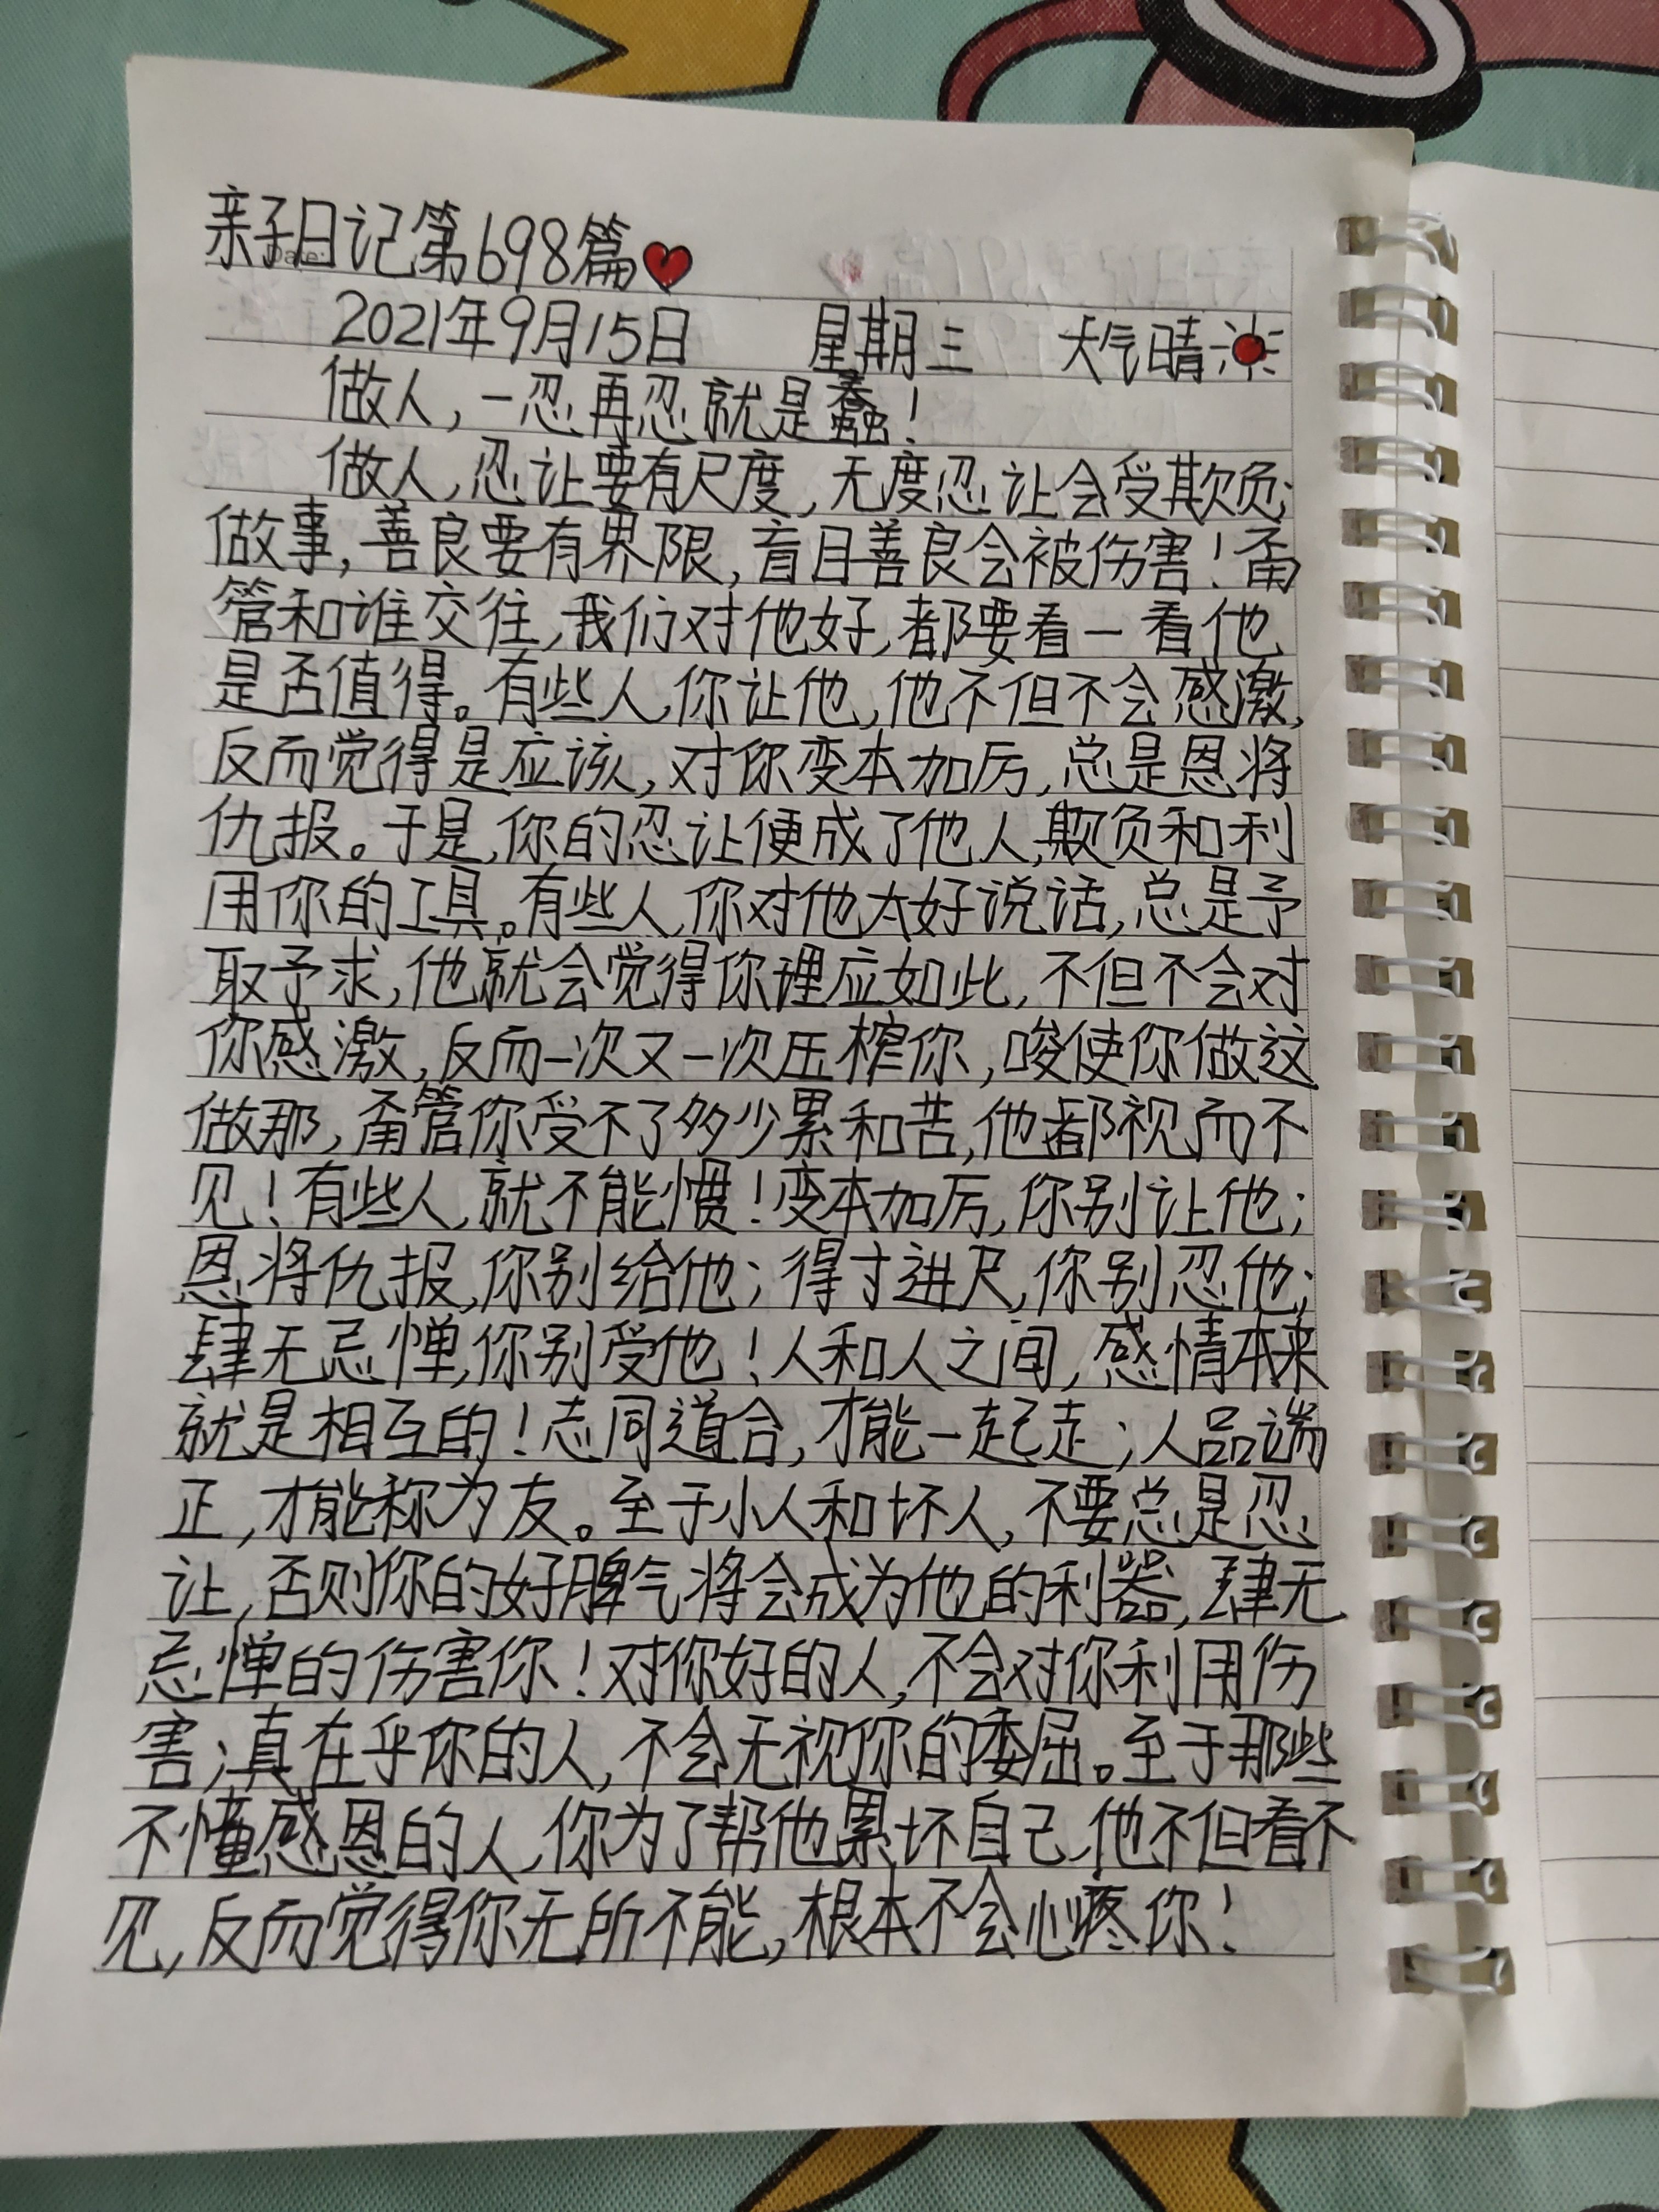 亲子日记第698篇
2021年9月15日 星期三 天气晴
做人,一忍再忍就是蠢!
做人,忍让要有尺度,无度忍让会受欺负;
做事,善良要有界限,盲目善良会被伤害!甭
管和谁交往,我们对他好,都要看一看他
是否值得。有些人,你让他,他不但不会感激,
反而觉得是应该,对你变本加厉,总是恩将
仇报。于是,你的忍让便成了他人,欺负和利
用你的工具。有些人,你对他太好说话,总是予
取予求,他就会觉得你理应如此,不但不会对
你感激,反而一次又一次压榨你,唆使你做这
做那,甭管你受不了多少累和苦,他都视而不
见!有些人,就不能惯!变本加厉,你别让他;
恩将仇报,你别给他;得寸进尺,你别忍他;
肆无忌惮,你别受他!人和人之间,感情本来
就是相互的!志同道合,才能一起走;人品端
正,才能称为友。至于小人和坏人,不要总是忍
让,否则你的好脾气将会成为他的利器,肆无
忌惮的伤害你!对你好的人,不会对你利用伤
害;真在乎你的人,不会无视你的委屈。至于那些
不懂感恩的人,你为了帮他累坏自己,他不但看不
见,反而觉得你无所不能,根本不会心疼你!